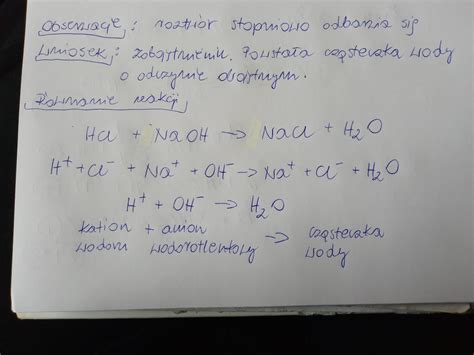 Obserwacje: roztwór stopniowo odbarwia się
Wniosek: zobojętnienie. Powstała cząsteczka wody
o odczynie obojętnym.
Równanie reakcji
HCl + NaOH → NaCl + H₂O
H⁺ + Cl⁻ + Na⁺ + OH⁻ → Na⁺ + Cl⁻ + H₂O
H⁺ + OH⁻ → H₂O
kation + anion → cząsteczka
wodoru wodorotlenkowy wody